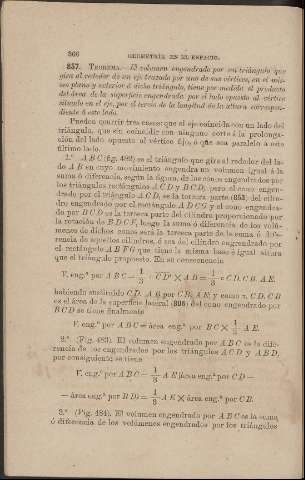 366 GEOMETRIA EN EL ESPACIO.
857. TEOREMA.—El volumen engendrado por un triángulo que
gira al rededor de un eje trazado por uno de sus vértices, en el mis-
mo plano y exterior á dicho triángulo, tiene por medida el producto
del área de la superficie engendrada por el lado opuesto al vértice
situado en el eje, por el tercio de la longitud de la altura correspon-
diente á este lado.
Pueden ocurrir tres casos: que el eje coincida con un lado del
triángulo, que sin coincidir con ninguno corte á la prolonga-
ción del lado opuesto al vértice fijo ó que sea paralelo á este
último lado.
1.º ABC (fig. 482) es el triángulo que gira al rededor del la-
do AB en cuyo movimiento engendra un volumen igual á la
suma ó diferencia, según la figura, de los conos engendrados por
los triángulos rectángulos ACD y BCD; pero el cono engen-
drado por el triángulo ACD, es la tercera parte (853) del cilin-
dro engendrado por el rectángulo ADCG y el cono engendra-
do por BCD es la tercera parte del cilindro proporcionado por
la rotación de BDCF, luego la suma ó diferencia de los volú-
menes de dichos conos será la tercera parte de la suma ó dife-
rencia de aquellos cilindros, ó sea del cilindro engendrado por
el rectángulo ABFG que tiene la misma base é igual altura
que el triángulo propuesto. En su consecuencia
V. eng.º por ABC = 1/3 π CD² × AB = 1/3 π CD. CB. AE.
habiendo sustituido CD. AB por CB. AE; y como π. CD. CB
es el área de la superficie lateral (808) del cono engendrado por
BCD se tiene finalmente
V. eng.º por ABC = área eng.ª por BC × 1/3 AE.
2.º (Fig. 483). El volumen engendrado por ABC es la dife-
rencia de los engendrados por los triángulos ACD y ABD,
por consiguiente se tiene
V. eng.º por ABC = 1/3 AE × área eng.ª por CD —
— área eng.ª por BD = 1/3 AE × área eng.ª por CB.
3.º (Fig. 484). El volumen engendrado por ABC es la suma
ó diferencia de los volúmenes engendrados por los triángulos